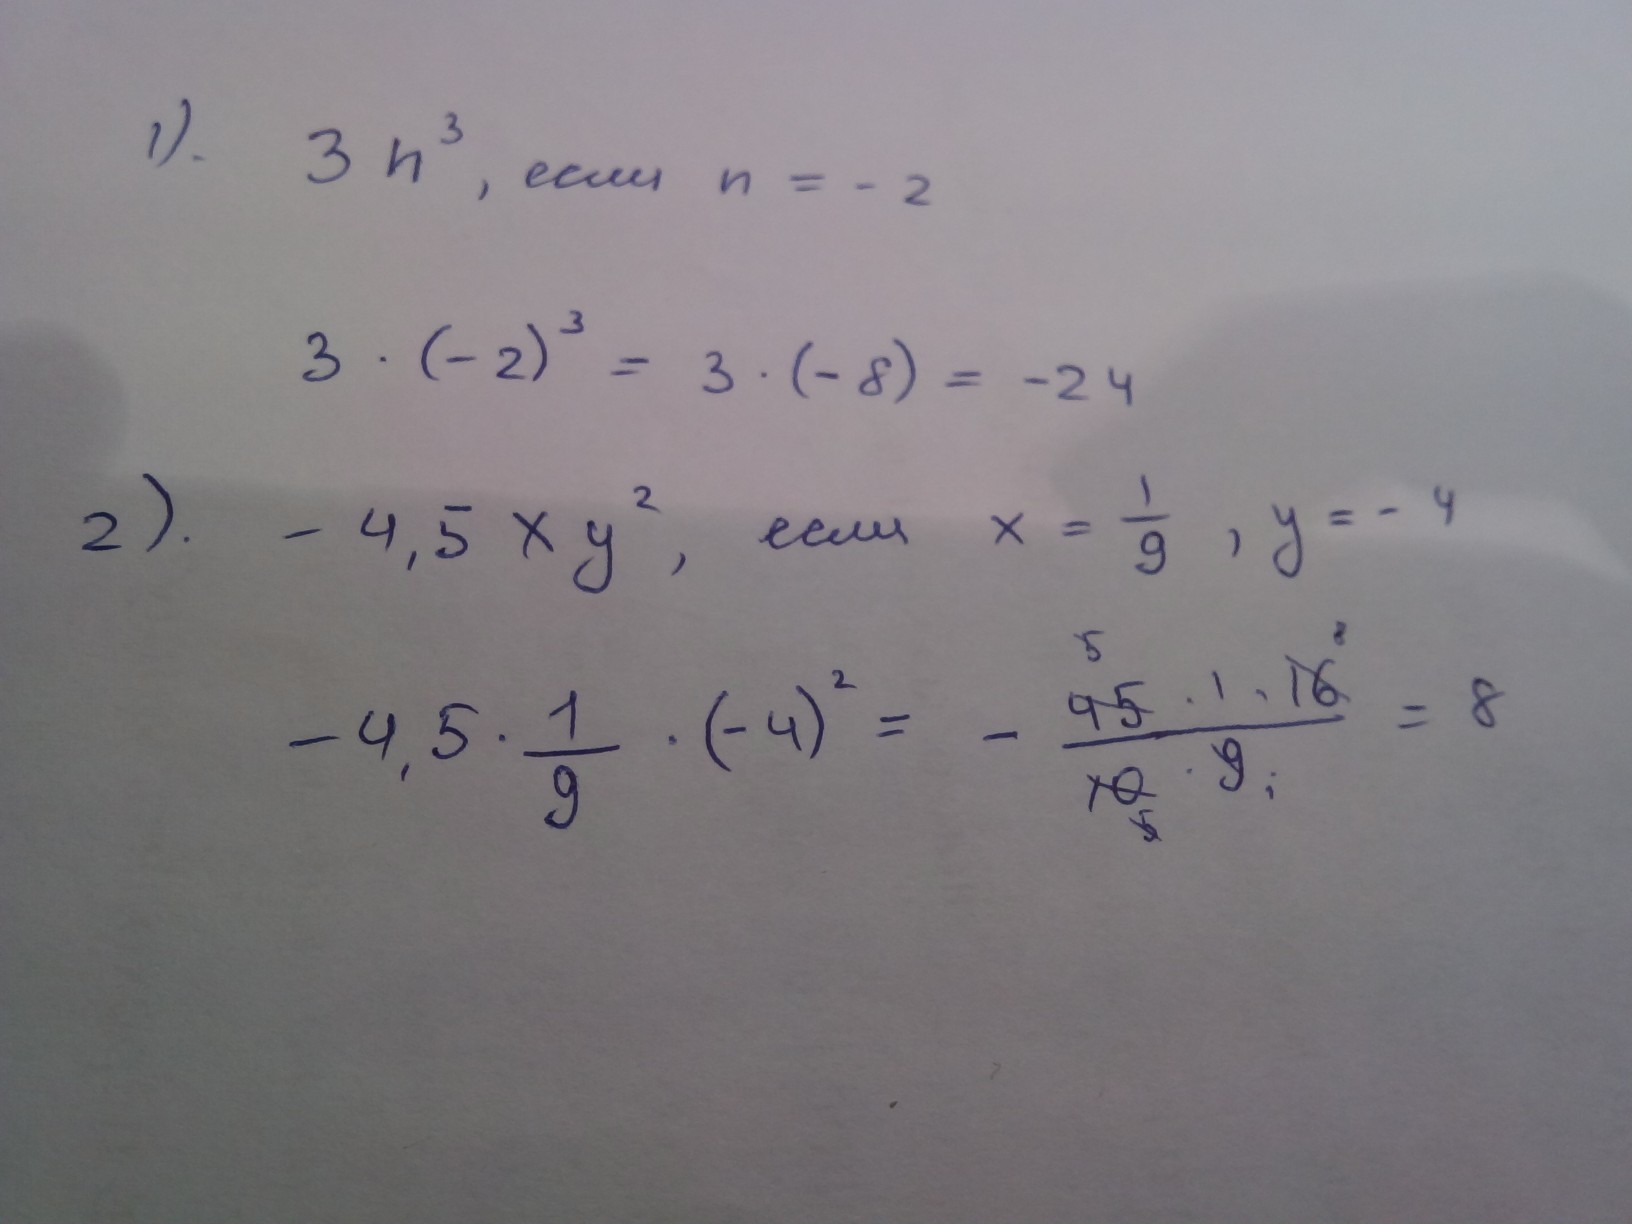 1). 3 n³, если n = - 2
3 · (- 2)³ = 3 · (- 8) = -24
2). - 4,5 x y², если x = 1/9, y = - 4
- 4,5 · 1/9 · (-4)² = - (45 · 1 · 16)/(10 · 9) = 8